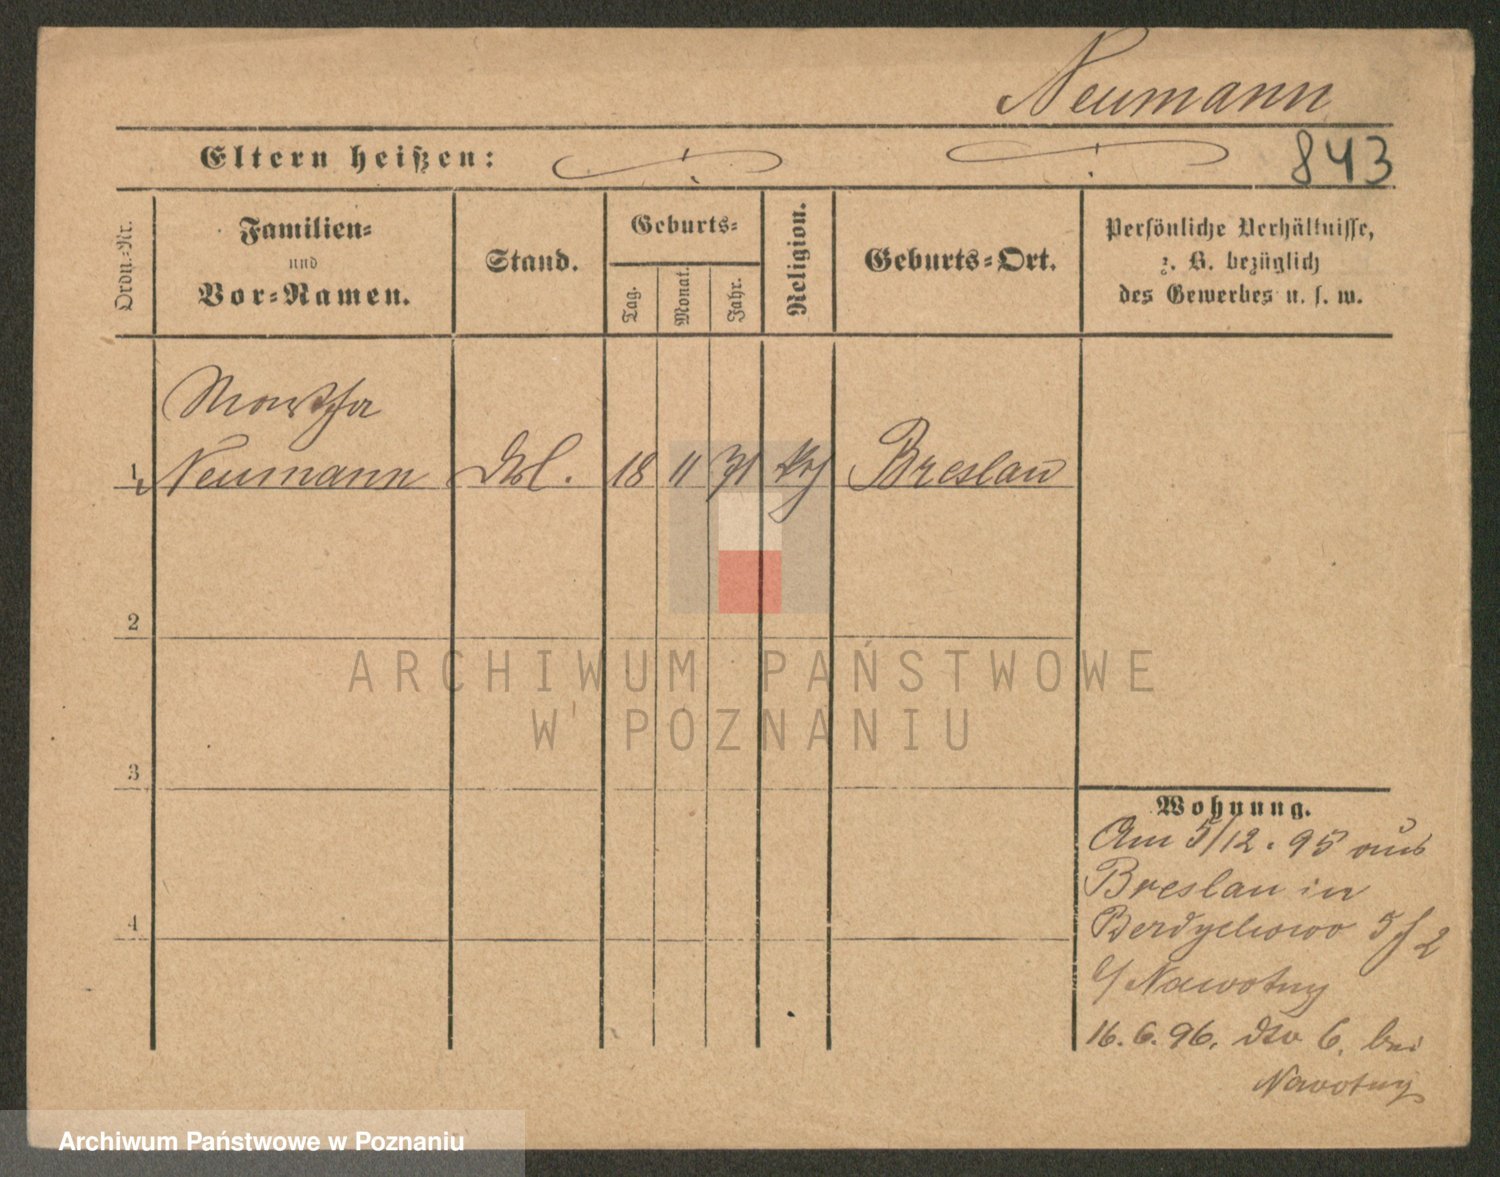 Neumann
Eltern heißen:
843
Ordn.-Nr.
Familien-
und
Vor-Namen.
Stand.
Geburts-
Tag.
Monat.
Jahr.
Religion.
Geburts-Ort.
Persönliche Verhältnisse,
z. B. bezüglich
des Gewerbes u. s. w.
Martha
1 Neumann 18 11 71 Breslau
2
3
4
Wohnung.
Am 5/12. 95 aus
Breslau in
Berdychowo 5/2
b/ Nawotny
16. 6. 96. dto 6. bei
Nawotny
ARCHIWUM PAŃSTWOWE
W POZNANIU
Archiwum Państwowe w Poznaniu